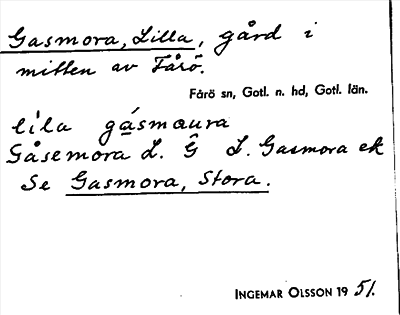 Gasmora, Lilla, gård i
mitten av Fårö.
Fårö sn, Gotl. n. hd, Gotl. län.
li̇̀la gásmaura
Gåsemora L. Ĝ L. Gasmora ek
Se Gasmora, Stora.
INGEMAR OLSSON 1951.